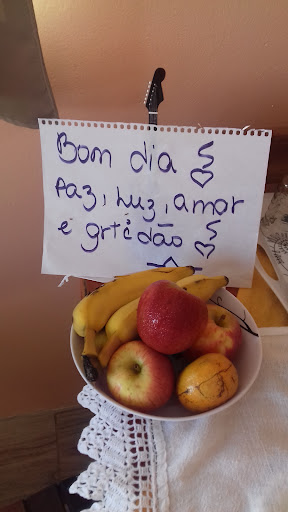 Bom dia
Paz, Luz, amor
e grtidão